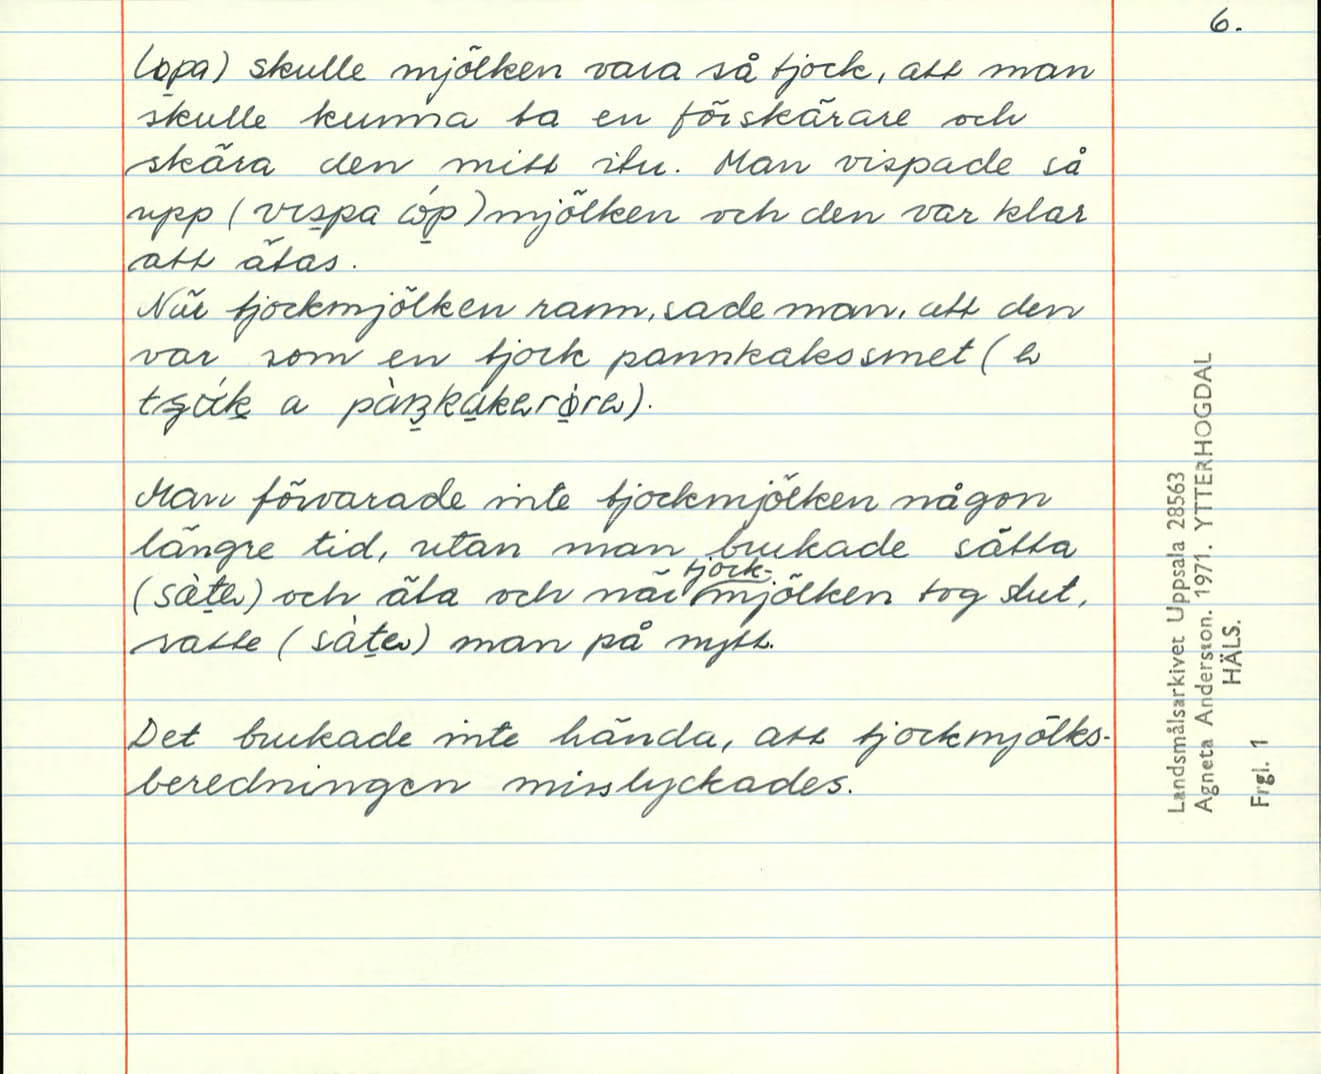 6.
(o̱pa) skulle mjölken vara så tjock, att man
skulle kunna ta en förskärare och
skära den mitt itu. Man vispade så
upp (vɪs̱pa ώp̱) mjölken och den var klar
att ätas.
När tjockmjölken rann, sade man, att den
var som en tjock pannkakssmet (
a
Man förvarade inte tjockmjölken någon
längre tid, utan man brukade sätta
(sàṯa) och äta och när tjock-mjölken tog slut,
satte (sàṯa) man på nytt.
Det brukade inte hända, att tjockmjölks-
beredningen misslyckades.
Landsmålsarkivet Uppsala 28563
Agneta Andersson. 1971. YTTERHOGDAL
HÄLS.
Frgl. 1